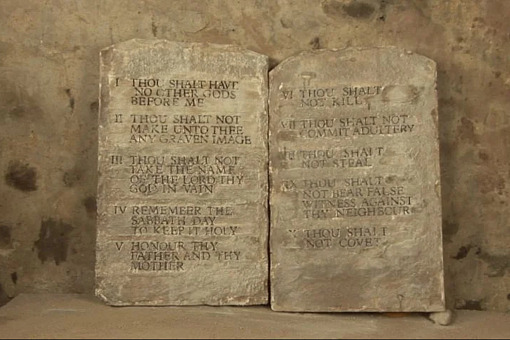 I THOU SHALT HAVE
NO OTHER GODS
BEFORE ME
II THOU SHALT NOT
MAKE UNTO THEE
ANY GRAVEN IMAGE
III THOU SHALT NOT
TAKE THE NAME
OF THE LORD THY
GOD IN VAIN
IV REMEMBER THE
SABBATH DAY
TO KEEP IT HOLY
V HONOUR THY
FATHER AND THY
MOTHER
VI THOU SHALT
NOT KILL
VII THOU SHALT NOT
COMMIT ADULTERY
THOU SHALT
NOT STEAL
IX THOU SHALT
NOT BEAR FALSE
WITNESS AGAINST
THY NEIGHBOUR
X THOU SHALT
NOT COVET